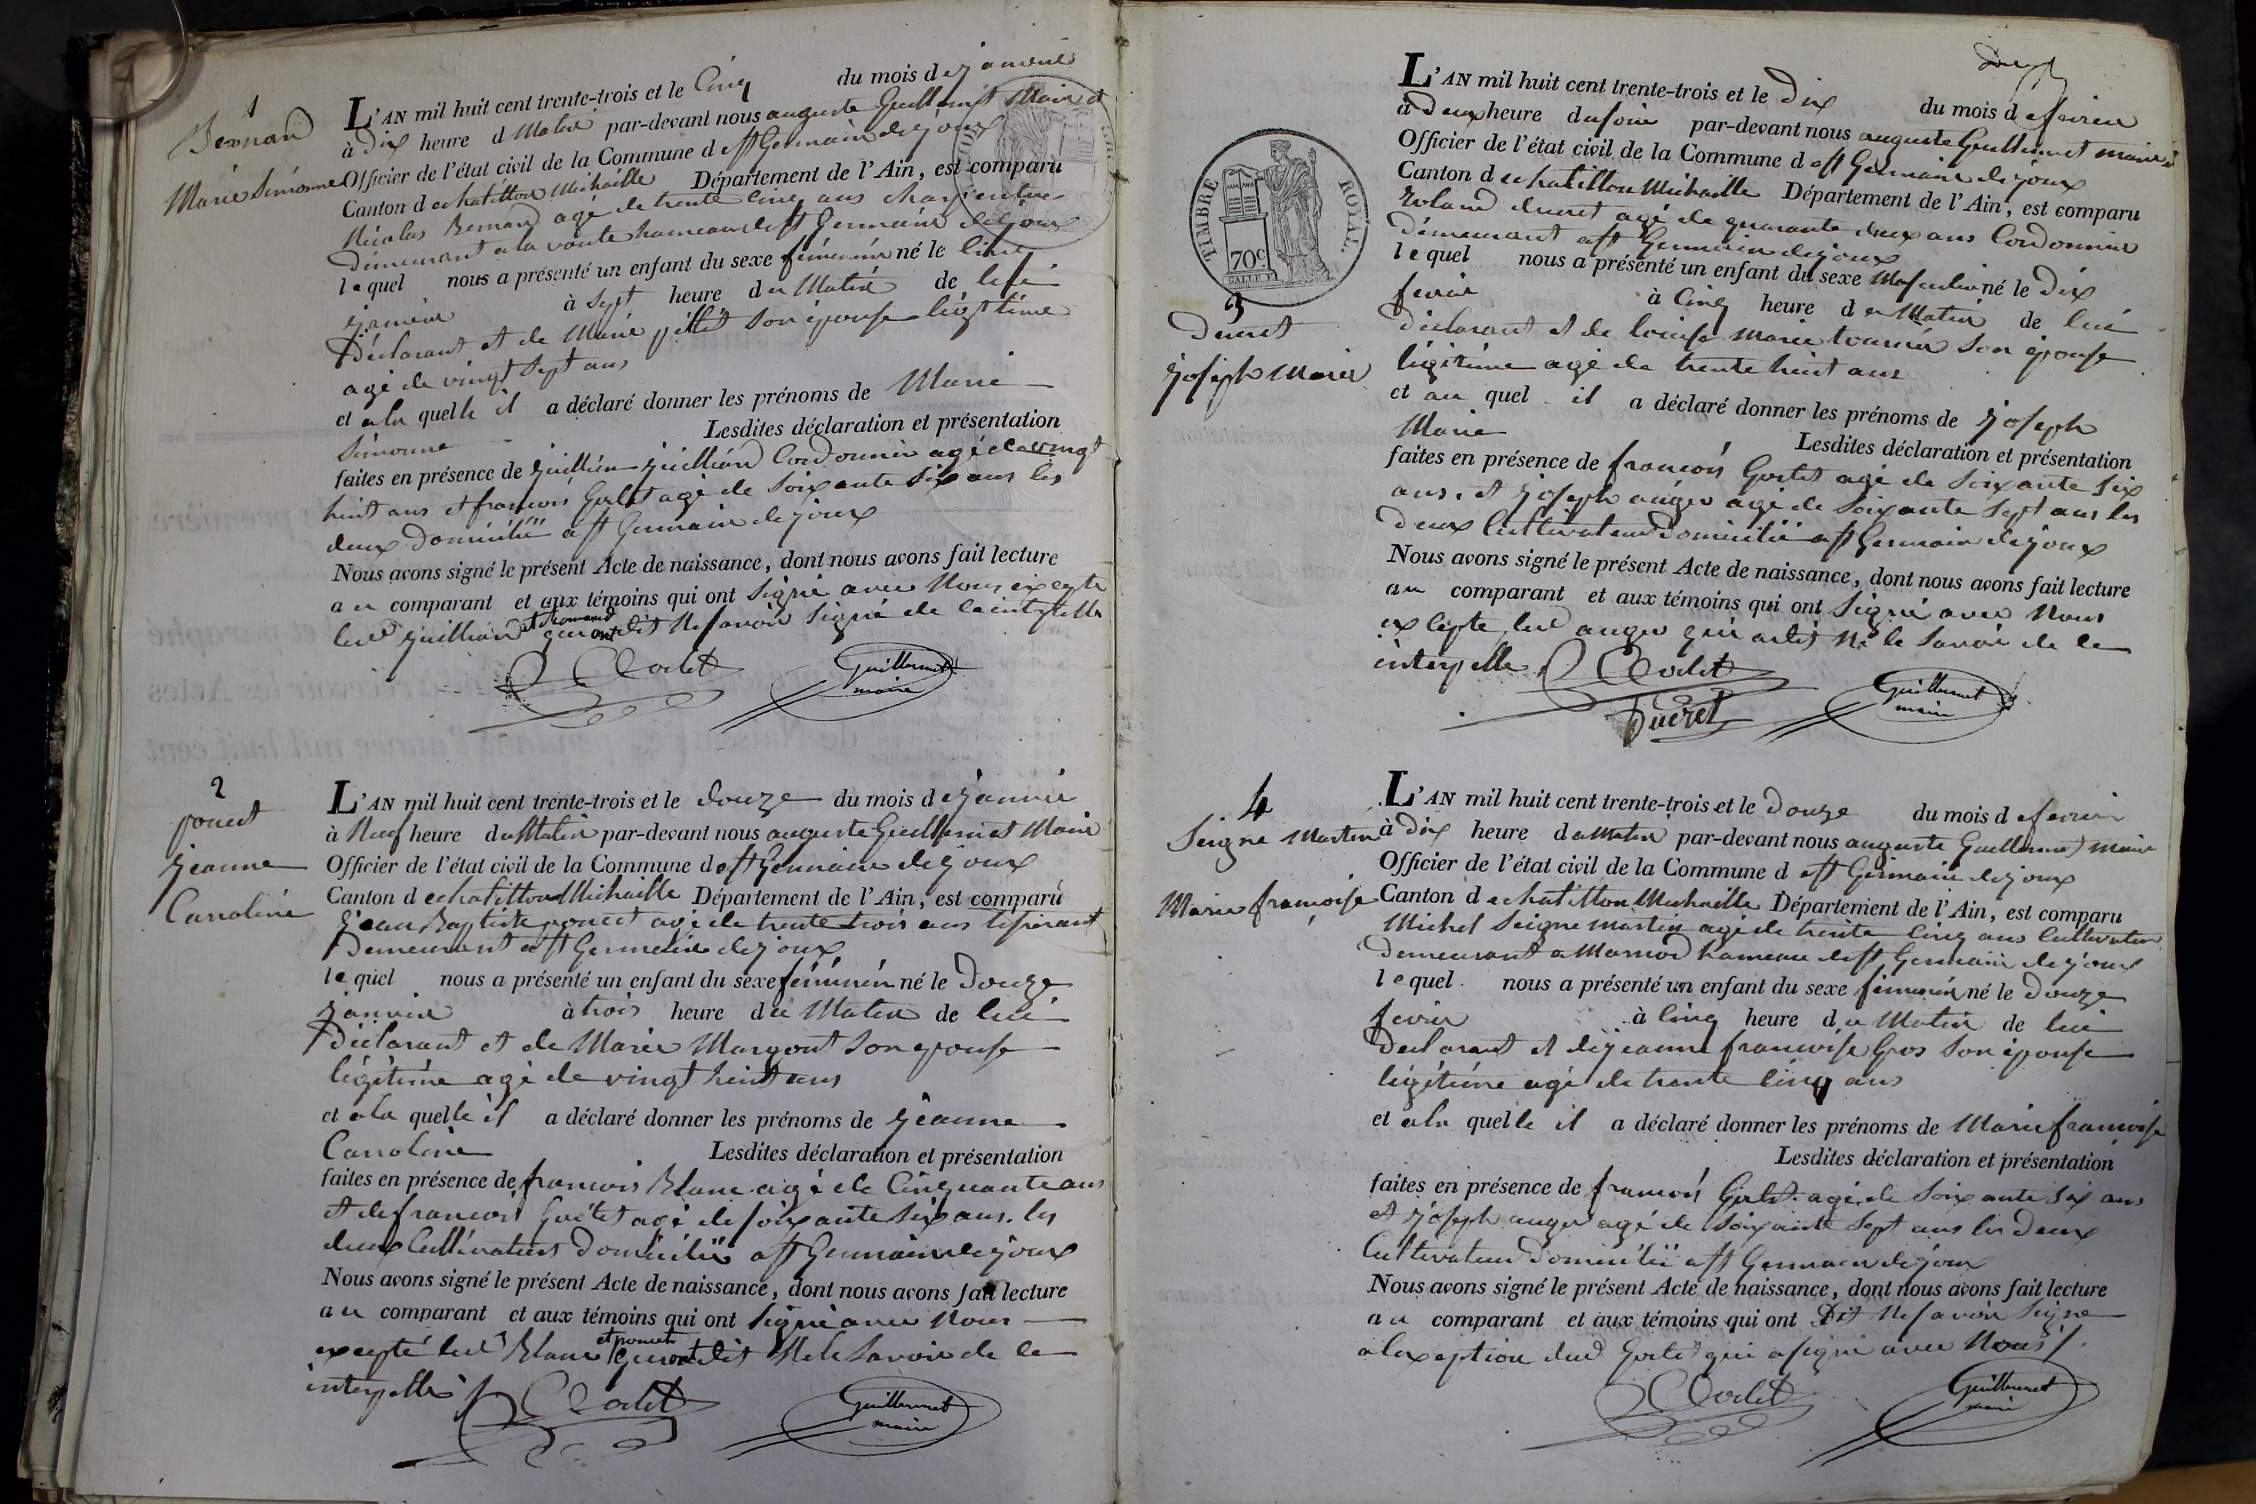 1
Bernard
Marie Simonne
L'AN mil huit cent trente-trois et le Cinq du mois de janvier
à Dix heure du Matin par-devant nous auguste Guillermet Maire et
Officier de l'état civil de la Commune de st Germain de joux
Canton de chatillon Michaille Département de l'Ain, est comparu
Nicolas Bernard agé de trente cinq ans charpentier
demeurant a la voute hameau de st Germain de joux
lequel nous a présenté un enfant du sexe féminin né le Cinq
janvier à sept heure du Matin de lui
Déclarant et de Marie pillet son épouse légitime
agé de vingt sept ans
et a la quelle il a déclaré donner les prénoms de Marie
Simonne Lesdites déclaration et présentation
faites en présence de juillien juilliard Cordonnier agé de vingt
huit ans et francois Godet agé de soixante six ans les
deux domicilié a st Germain de joux
Nous avons signé le présent Acte de naissance, dont nous avons fait lecture
au comparant et aux témoins qui ont signé avec Nous excepte
led juilliard et Bernard qui ont dit Ne savoir signé de ce interpellé
Godet Guillermet
maire
2
poncet
jeanne
Carroline
L'AN mil huit cent trente-trois et le douze du mois de janvier
à Neuf heure du Matin par-devant nous auguste Guillermet Maire
Officier de l'état civil de la Commune de st Germain de joux
Canton de chatillon Michaille Département de l'Ain, est comparu
jean Baptiste poncet agé de trente trois ans tisserant
Demeurant a st Germain de joux
lequel nous a présenté un enfant du sexe féminin né le Douze
janvier à trois heure du Matin de lui
Déclarant et de Marie Margont son épouse
légitime agé de vingt huit ans
et a la quelle il a déclaré donner les prénoms de jeanne
Carroline Lesdites déclaration et présentation
faites en présence de francois Blanc agé de Cinquante ans
et de francois Godet agé de soixante six ans. les
deux Cultivateurs domicilié a st Germain de joux
Nous avons signé le présent Acte de naissance, dont nous avons fait lecture
au comparant et aux témoins qui ont signé avec Nous
excepté led Blanc et poncet qui ont dit Ne le savoir de ce
interpellé
Godet Guillermet
maire
TIMBRE ROYAL.
70c
3
Ducret
joseph Marie
L'AN mil huit cent trente-trois et le Dix du mois de fevrier
à Deux heure du soir par-devant nous auguste Guillermet maire et
Officier de l'état civil de la Commune de st Germain de joux
Canton de chatillon Michaille Département de l'Ain, est comparu
Roland ducret agé de quarante deux ans Cordonnier
demeurant a st Germain de joux
lequel nous a présenté un enfant du sexe Masculin né le Dix
fevrier à Cinq heure du Matin de lui
déclarant et de louise Marie tournier son épouse
légitime agé de trente huit ans
et au quel il a déclaré donner les prénoms de joseph
Marie Lesdites déclaration et présentation
faites en présence de francois Godet agé de soixante six
ans. et joseph auger agé de soixante sept ans les
deux Cultivateur domicilié a st Germain de joux
Nous avons signé le présent Acte de naissance, dont nous avons fait lecture
au comparant et aux témoins qui ont signé avec Nous
excepte led auger qui a dit Ne le savoir de ce
interpellé
Godet Guillermet
maire
Ducret
4
Seigne Martin
Marie françoise
L'AN mil huit cent trente-trois et le Douze du mois de fevrier
à dix heure du Matin par-devant nous auguste Guillermet maire
Officier de l'état civil de la Commune de st Germain de joux
Canton de chatillon Michaille Département de l'Ain, est comparu
Michel Seigne martin agé de trente cinq ans Cultivateur
demeurant a Marnod hameau de st Germain de joux
lequel nous a présenté un enfant du sexe féminin né le Douze
fevrier à Cinq heure du Matin de lui
Declarant et de jeanne francoise Gros son épouse
légitime agé de trente cinq ans
et a la quelle il a déclaré donner les prénoms de Marie francoise
Lesdites déclaration et présentation
faites en présence de francois Godet agé de soixante six ans
et joseph auger agé de soixante sept ans les Deux
Cultivateur domicilié a st Germain de joux
Nous avons signé le présent Acte de naissance, dont nous avons fait lecture
au comparant et aux témoins qui ont Dit Ne savoir signe
a lexception dud Godet qui a signé avec Nous
Godet Guillermet
maire